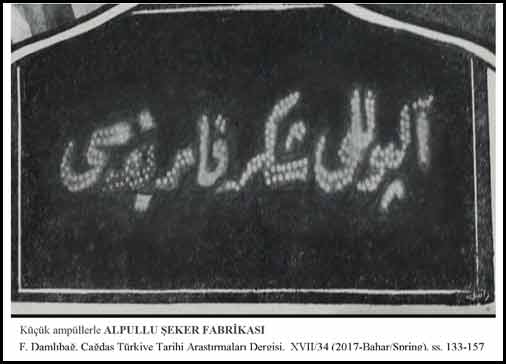 آلپوللی شكر فابریقه‌سی
راسم
Küçük ampüllerle ALPULLU ŞEKER FABRİKASI
F. Damlıbağ, Çağdaş Türkiye Tarihi Araştırmaları Dergisi, XVII/34 (2017-Bahar/Spring), ss. 133-157